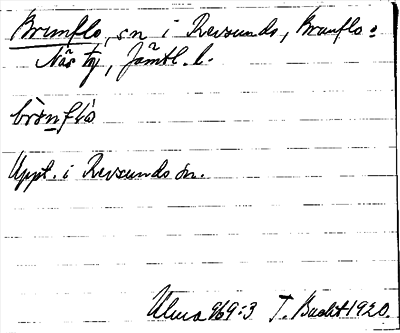 Brunflo, sn i Revsunds, Brunflo o
Näs tg, Jämtl. l.
brònflo
Uppt. i Revsunds sn.
Ulma 969:3 T. Bucht 1920.